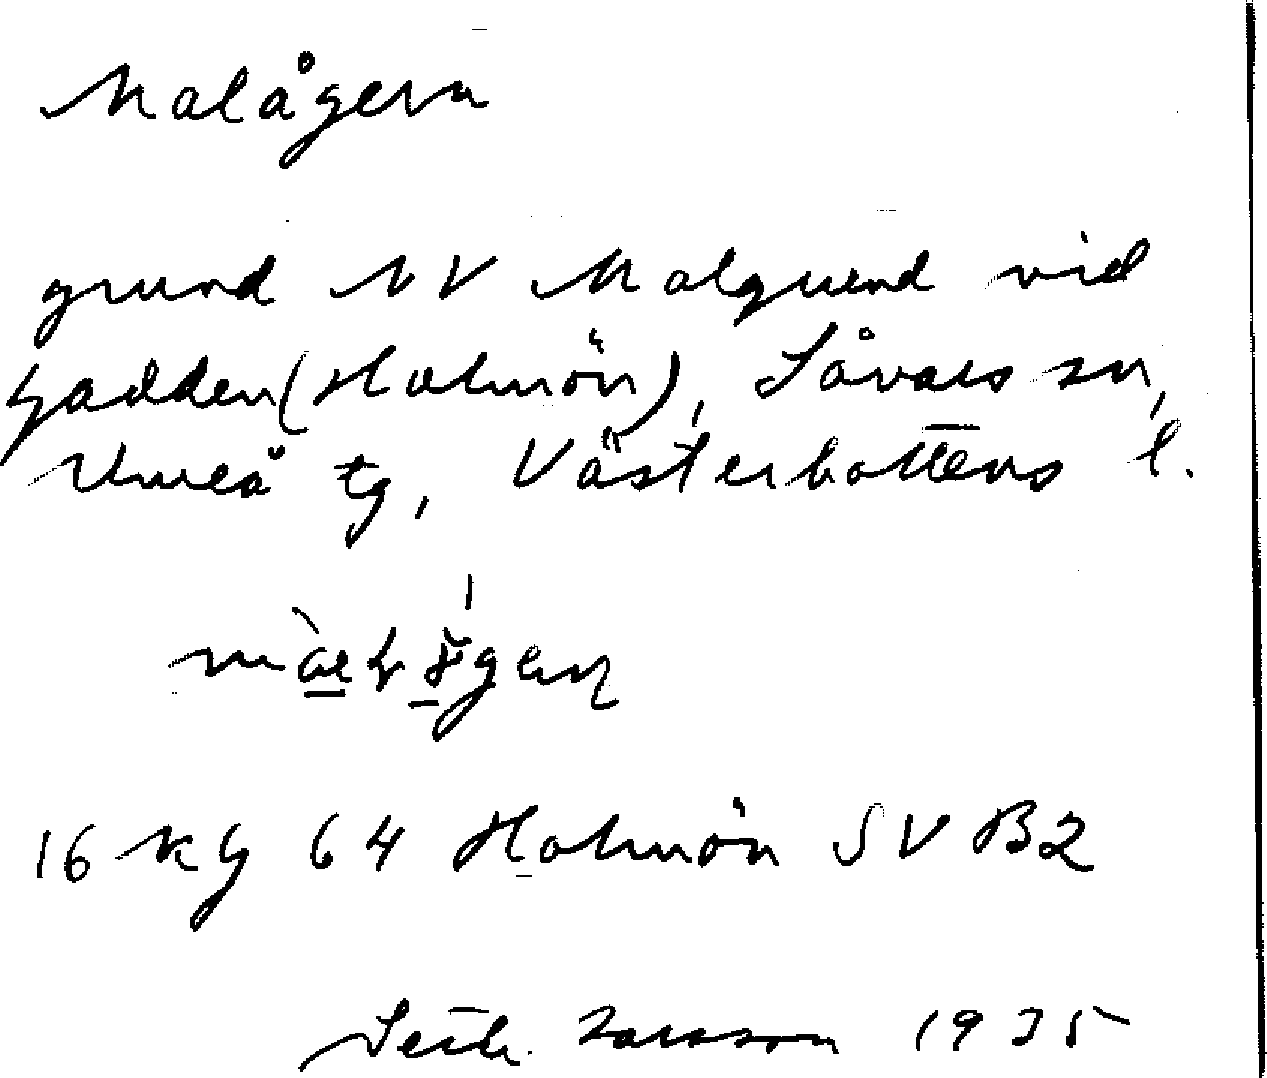 Malågern
grund NV Malgrund vid
Gadden (Holmön), Sävars sn,
Umeå tg, Västerbottens l.
16 KG 64 Holmön SV B2
Larsson 1935